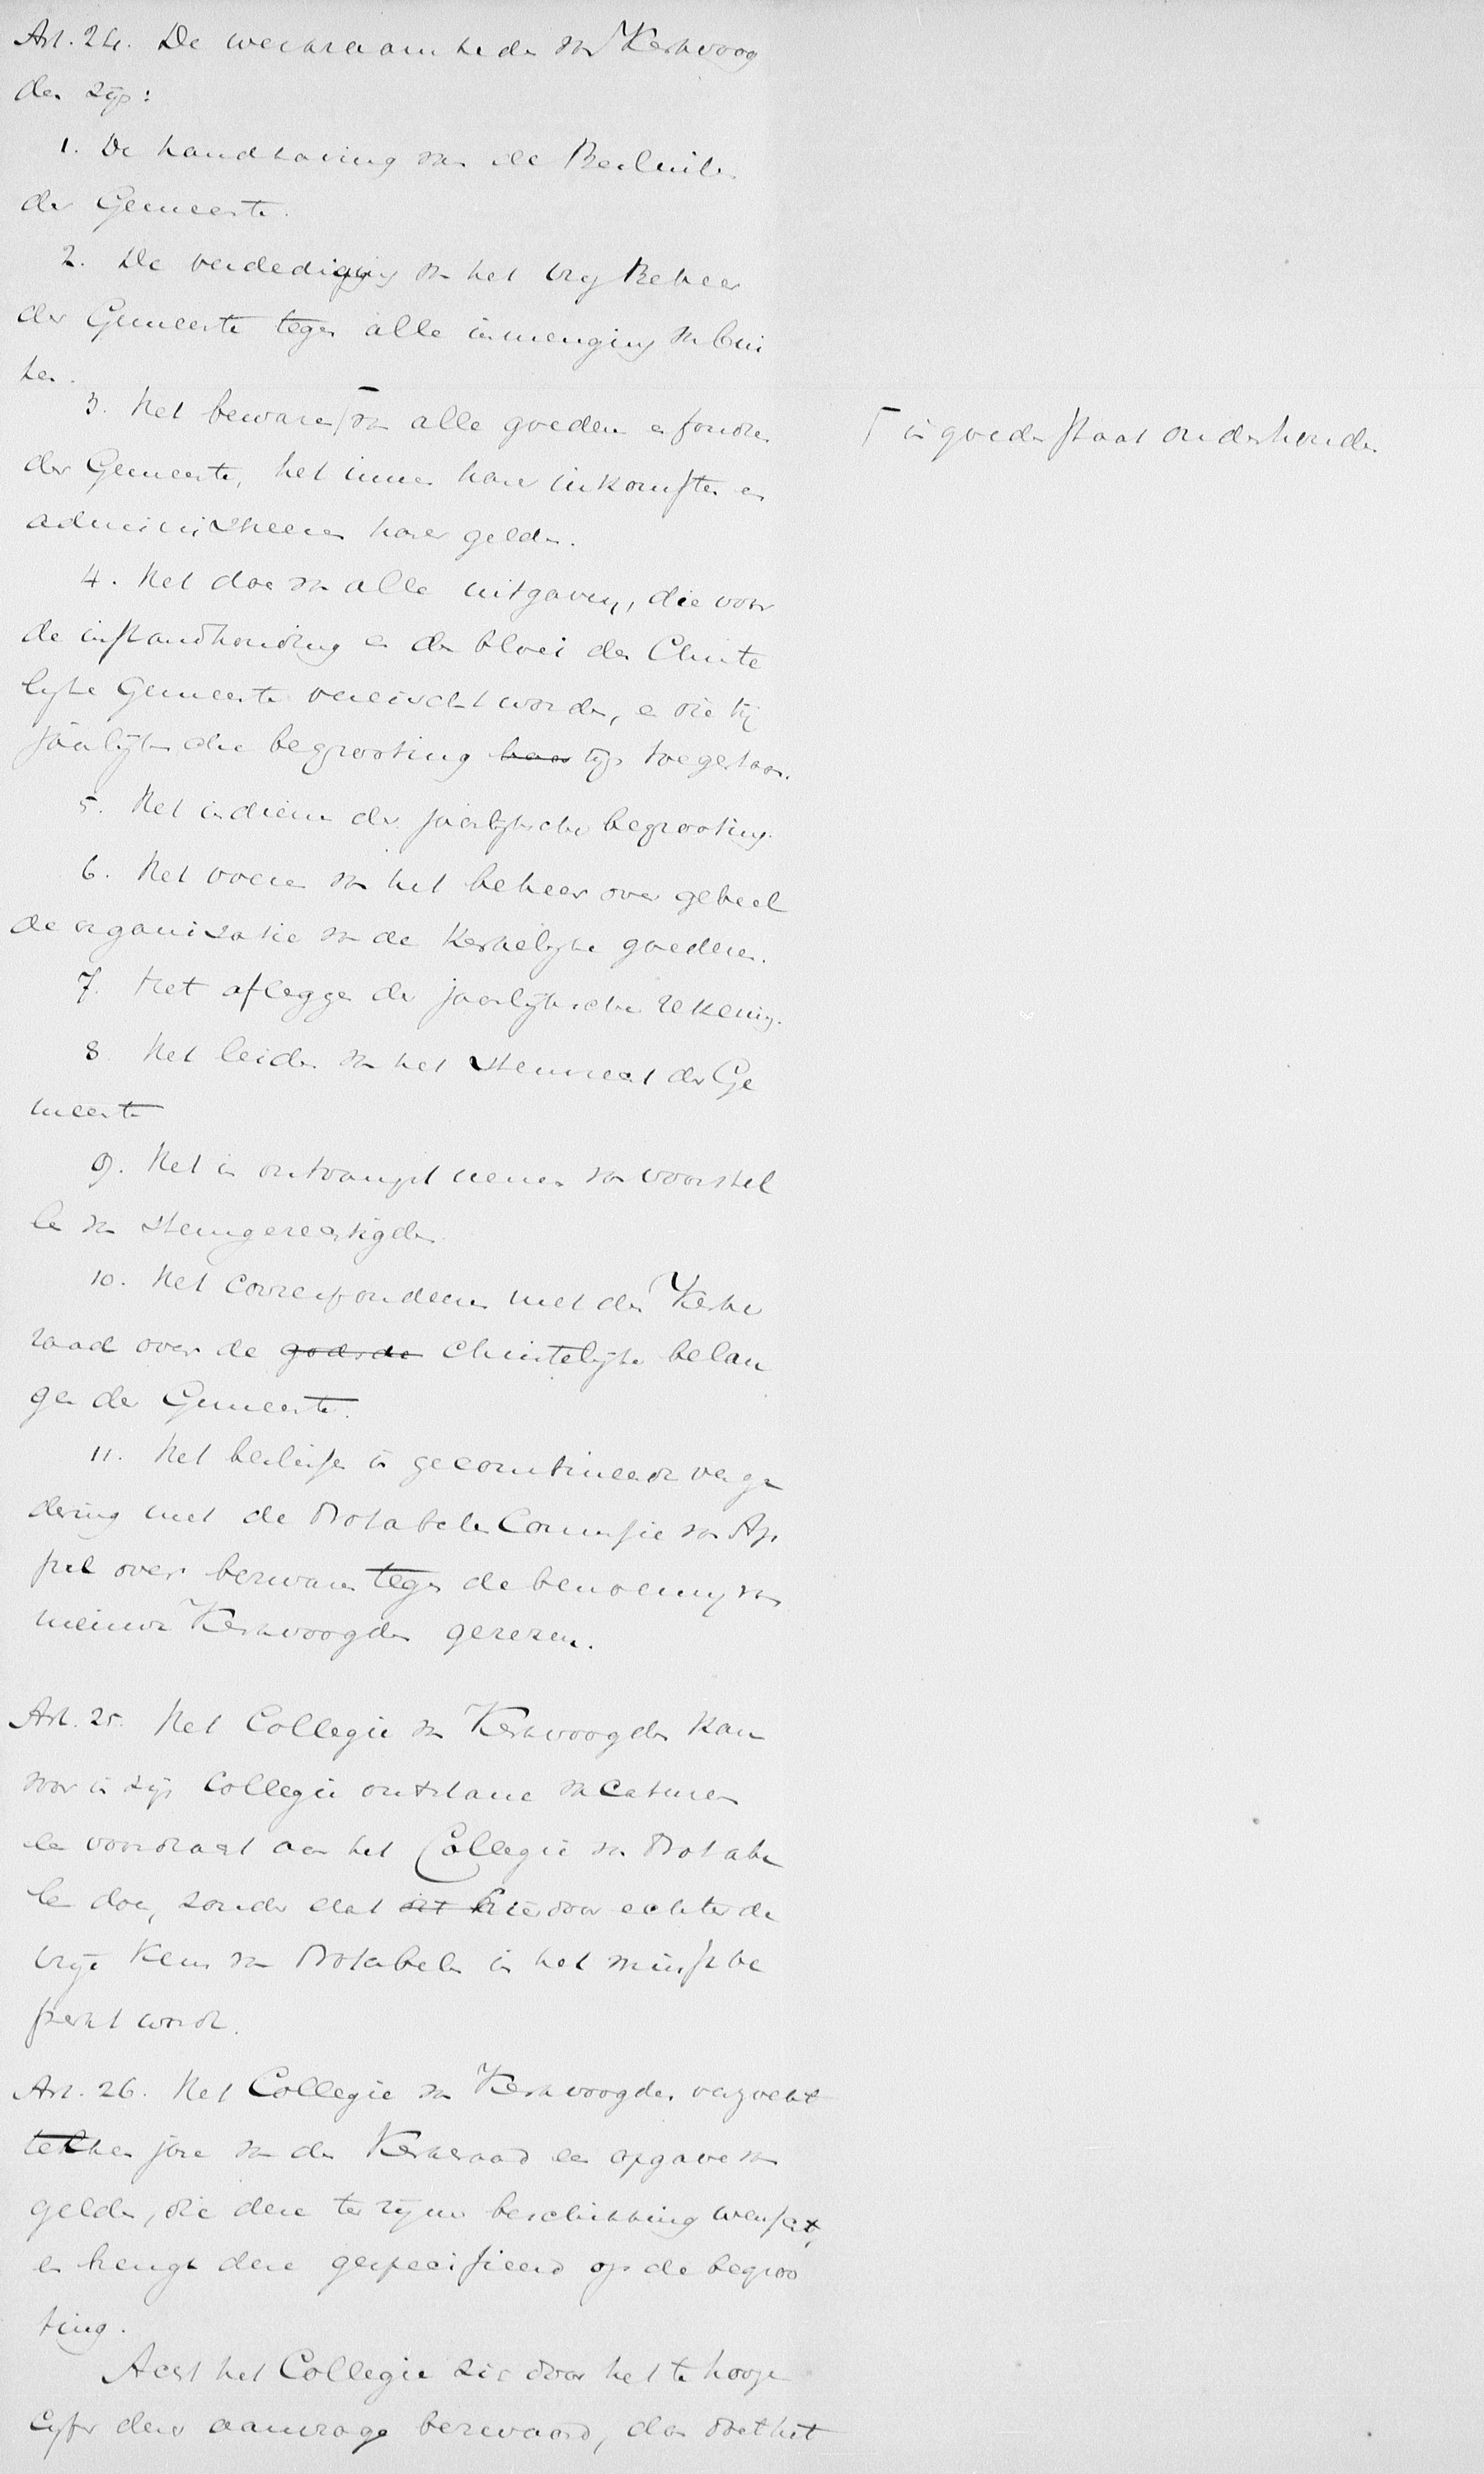 Art. 24. De werkzaamheden van Kerkvoog
den zijn:
1. De handhaving van de Besluiten
der Gemeente.
2. De verdediging van het vrij Beheer
der Gemeente tegen alle inmenging van bui
ten.
3. Het bewaren ⌈ van alle goederen en fondsen
⌈ in goeden staat onderhouden
der Gemeente, het innen harer inkomsten en
administreeren harer gelden.
4. Het doen van alle uitgaven, die voor
de instandhouding en den bloei der Christe
lijke Gemeente vereischt worden, en die bij
jaarlijksche begrooting haar zijn toegestaan.
5. Het indienen der jaarlijksche begrooting.
6. Het voeren van het beheer over geheel
de organisatie van de Kerkelijke goederen.
7. Het afleggen der jaarlijksche rekening.
8. Het leiden van het stemrecht der Ge
meente
9. Het in ontvangst nemen van voorstel
len van stemgerechtigden.
10. Het correspondeeren met den Kerke
raad over de godsdie Christelijke belan
gen der Gemeente.
11. Het beslissen in gecombineerde verga
dering met de Notabelen Commissie van Ap
pel over bezwaren tegen de benoeming van
nieuwe Kerkvoogden gerezen.
Art. 25. Het Collegie van Kerkvoogden kan
voor in zijn Collegie ontstane vacaturen
een voordracht aan het Collegie van Notabe
len doen, zonder dat dit hierdoor echter de
vrije keus van Notabelen in het minst be
perkt wordt.
Art. 26. Het Collegie van Kerkvoogden verzoekt
telken jare van den Kerkeraad een opgave van
gelden, die deze te zijner beschikking wenscht,
en brengt deze gespecifieerd op de begroo
ting.
Acht het Collegie zich door het te hooge
cijfer dezer aanvrage bezwaard, dan doet het